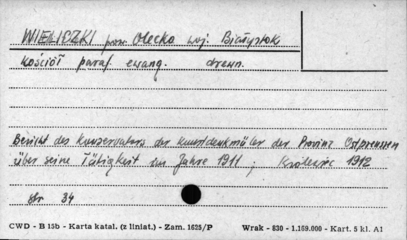 WIELICZKI pow. Olecko woj. Białystok
Kościół paraf. ewang. drewn.
Bericht des Konservators der Kunstdenkmäler der Provinz Ostpreussen
über seine Tätigkeit im Jahre 1911; Królewiec 1912
str 34
CWD - B 15b - Karta katal. (z liniat.) - Zam. 1625/P Wrak - 830 - 1.169.000 - Kart. 5 kl. A1